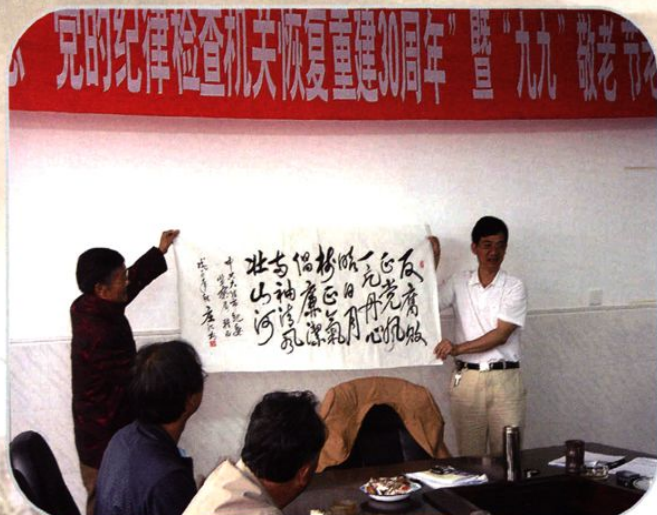 “党的纪律检查机关恢复重建30周年”暨“九九”敬老节
反腐败
正党风
一片丹心
昭日月
树正氣
倡廉潔
两袖清风
壮山河